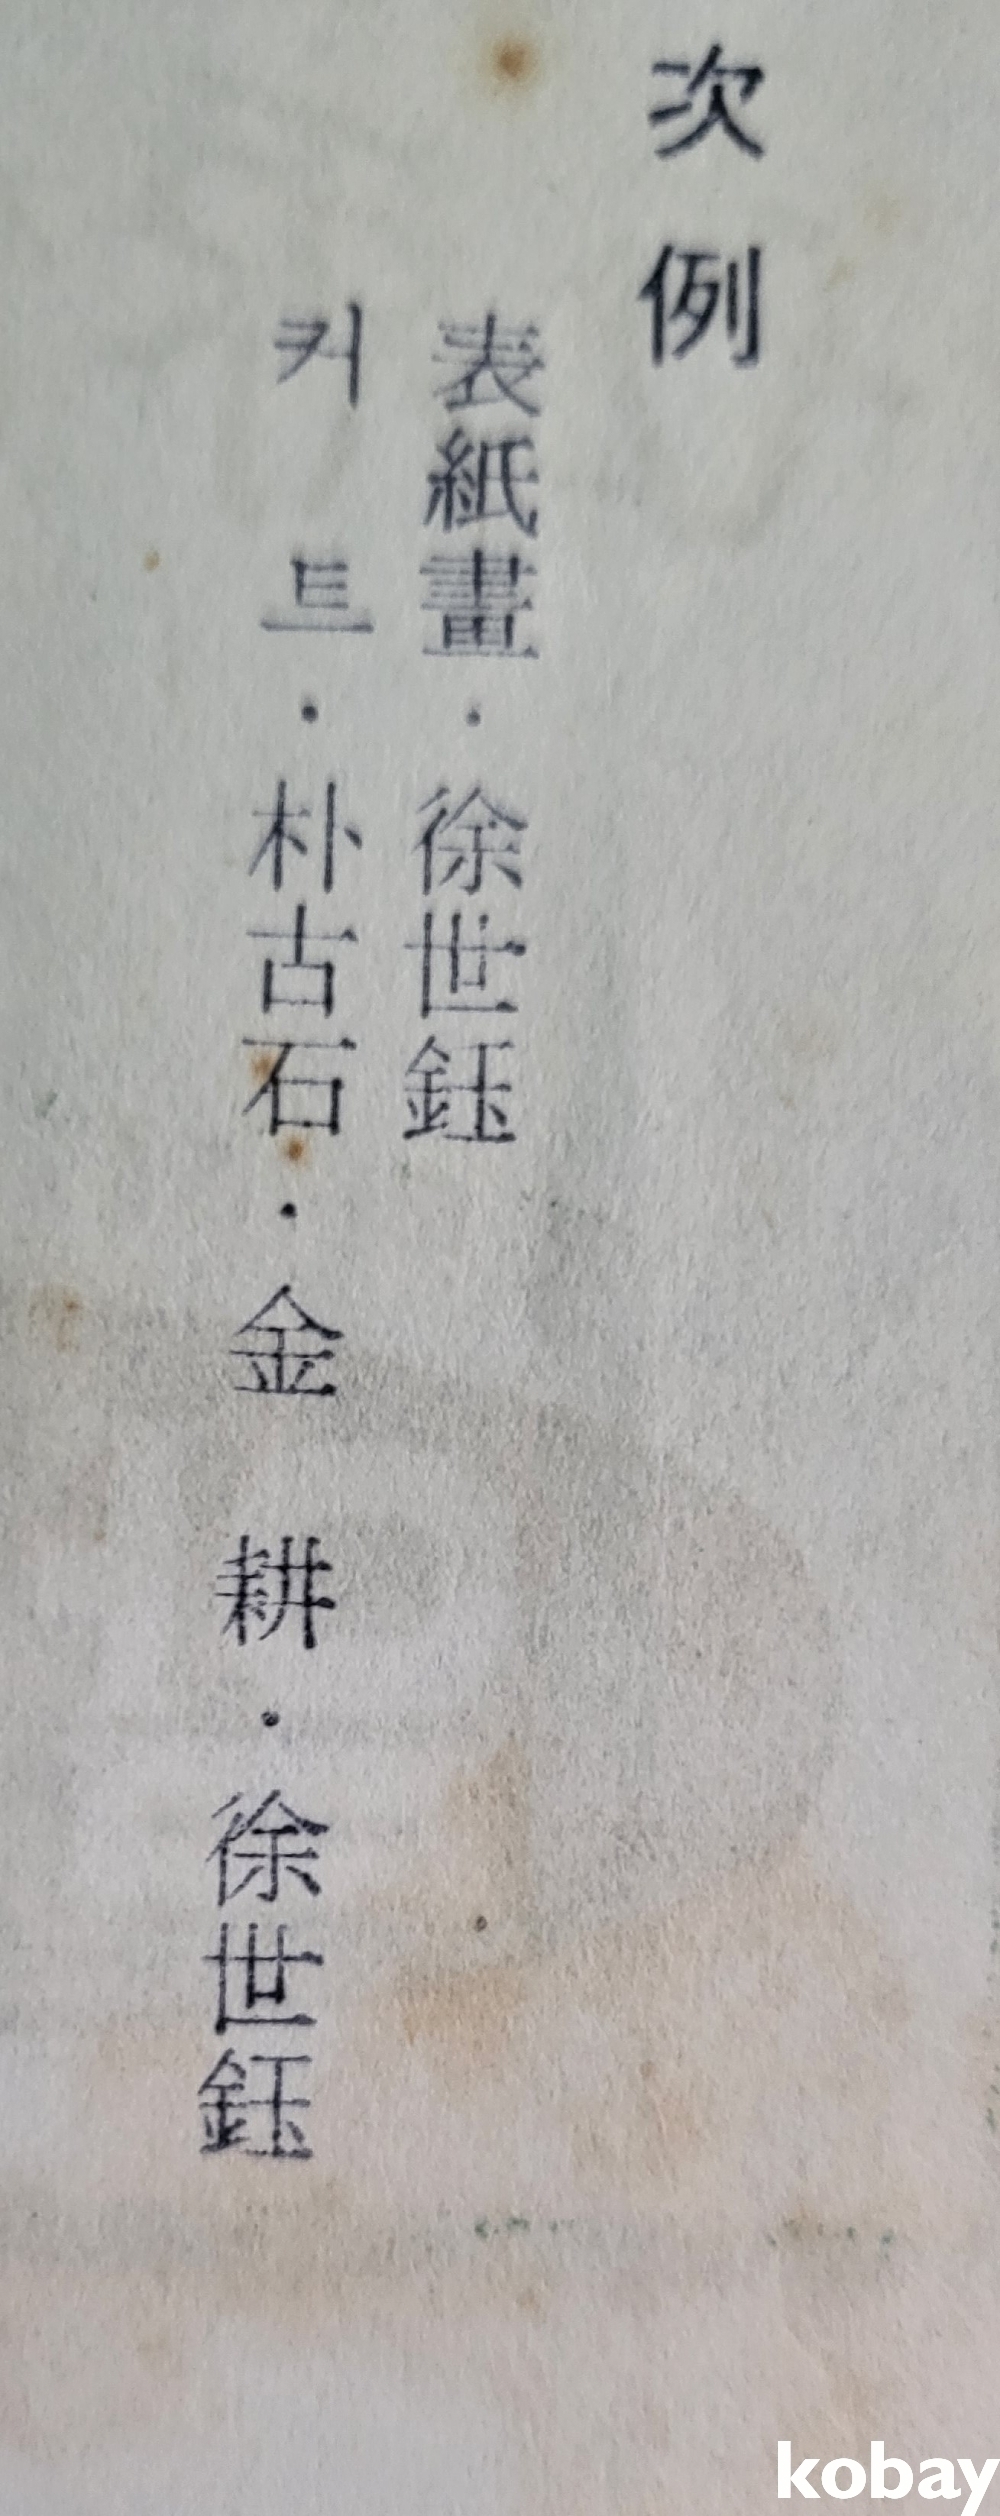 次例
表紙畫・徐世鈺
커트・朴古石・金 耕・徐世鈺
kobay